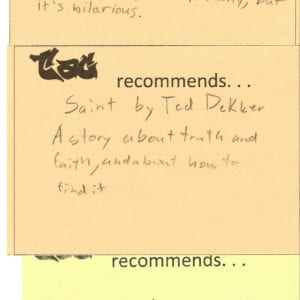 it's hilarious.
but
TAG
recommends. . .
Saint by Ted Dekker
A story about truth and
faith, and about how to
find it
recommends. . .